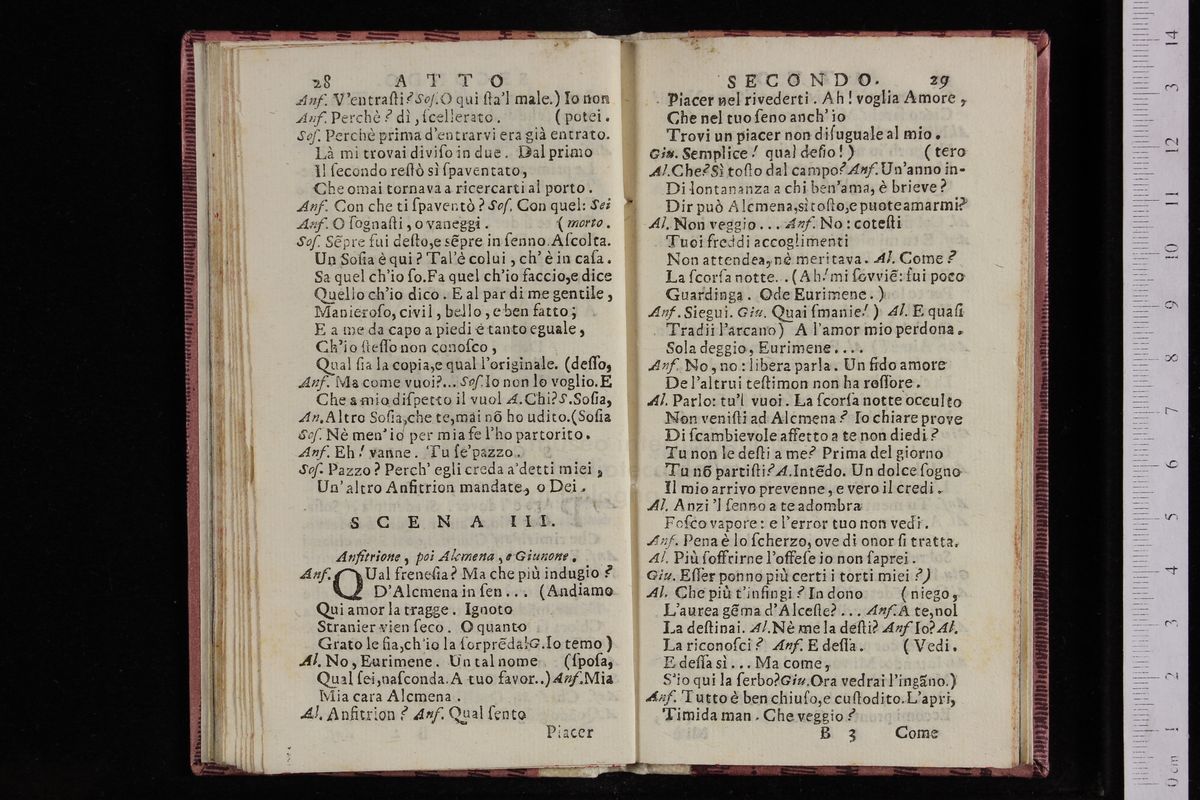 28 ATTO
Anf. V'entraſti? Soſ. O qui ſta'l male.) Io non
Anf. Perchè? dì, ſcellerato. (potei.
Soſ. Perchè prima d'entrarvi era già entrato.
Là mi trovai diviſo in due. Dal primo
Il ſecondo reſtò sì ſpaventato,
Che omai tornava a ricercarti al porto.
Anf. Con che ti ſpaventò? Soſ. Con quel: Sei
Anf. O ſognaſti, o vaneggi. (morto.
Soſ. Sẽpre fui deſto, e sẽpre in ſenno. Aſcolta.
Un Soſia è qui? Tal'è colui, ch'è in caſa.
Sa quel ch'io ſo. Fa quel ch'io faccio, e dice
Quello ch'io dico. E al par di me gentile,
Manieroſo, civil, bello, e ben fatto;
E a me da capo a piedi è tanto eguale,
Ch'io ſteſſo non conoſco,
Qual ſia la copia, e qual l'originale. (deſſo,
Anf. Ma come vuoi?... Soſ. Io non lo voglio. E
Che a mio diſpetto il vuol A. Chi? S. Soſia,
An. Altro Soſia, che te, mai nõ ho udito. (Soſia
Soſ. Nè men'io per mia fe l'ho partorito.
Anf. Eh! vanne. Tu ſe'pazzo.
Soſ. Pazzo? Perch' egli creda a'detti miei,
Un'altro Anfitrion mandate, o Dei.
SCENA III.
Anfitrione, poi Alcmena, e Giunone.
Anf. QUal freneſia? Ma che più indugio?
D'Alcmena in ſen... (Andiamo
Qui amor la tragge. Ignoto
Stranier vien ſeco. O quanto
Grato le fia, ch'io la ſorprẽda! G. Io temo)
Al. No, Eurimene. Un tal nome (ſpoſa,
Qual ſei, naſconda. A tuo favor..) Anf. Mia
Mia cara Alcmena.
Al. Anfitrion? Anf. Qual ſento
Piacer
SECONDO. 29
Piacer nel rivederti. Ah! voglia Amore,
Che nel tuo ſeno anch'io
Trovi un piacer non diſuguale al mio.
Giu. Semplice! qual deſio!) (tero
Al. Che? Sì toſto dal campo? Anf. Un'anno in-
Di lontananza a chi ben'ama, è brieve?
Dir può Alcmena, sì toſto, e puote amarmi?
Al. Non veggio... Anf. No: coteſti
Tuoi freddi accoglimenti
Non attendea, nè meritava. Al. Come?
La ſcorſa notte.. (Ah! mi ſovviẽ: fui poco
Guardinga. Ode Eurimene.)
Anf. Siegui. Giu. Quai ſmanie!) Al. E quaſi
Tradii l'arcano) A l'amor mio perdona.
Sola deggio, Eurimene....
Anf. No, no: libera parla. Un fido amore
De l'altrui teſtimon non ha roſſore.
Al. Parlo: tu'l vuoi. La ſcorſa notte occulto
Non veniſti ad Alcmena? Io chiare prove
Di ſcambievole affetto a te non diedi?
Tu non le deſti a me? Prima del giorno
Tu nõ partiſti? A. Intẽdo. Un dolce ſogno
Il mio arrivo prevenne, e vero il credi.
Al. Anzi 'l ſenno a te adombra
Foſco vapore: e l'error tuo non vedi.
Anf. Pena è lo ſcherzo, ove di onor ſi tratta.
Al. Più ſoffrirne l'offeſe io non ſaprei.
Giu. Eſſer ponno più certi i torti miei?)
Al. Che più t'infingi? In dono (niego,
L'aurea gẽma d'Alceſte?... Anf. A te, nol
La deſtinai. Al. Nè me la deſti? Anf Io? Al.
La riconoſci? Anf. E deſſa. (Vedi.
E deſſa sì... Ma come,
S'io qui la ſerbo? Giu. Ora vedrai l'ingãno.)
Anf. Tutto è ben chiuſo, e cuſtodito. L'apri,
Timida man. Che veggio?
B 3 Come
14
13
12
11
10
9
8
7
6
5
4
3
2
1
0 cm